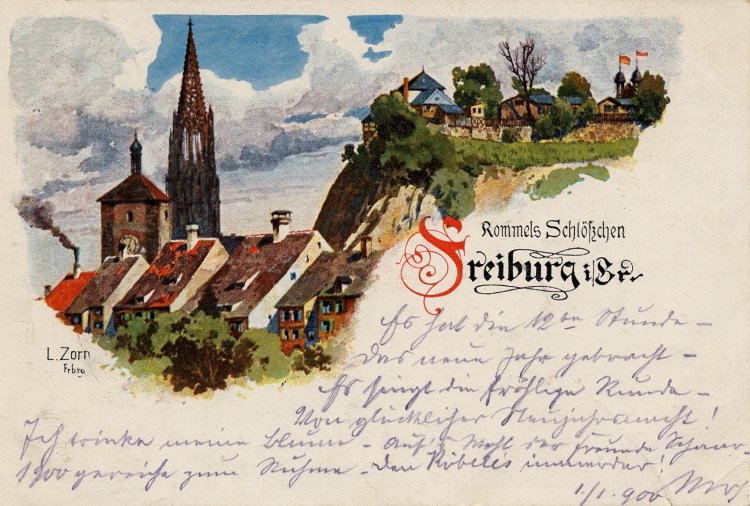 Kommels Schlößchen
Freiburg i/Br.
L. Zorn
Frbrg
Es hat die 12te Stunde –
Das neue Jahr gebracht –
Es singt die fröhlige Runde –
Von glücklicher Neujahrsnacht!
Ich trinke meine Blume – Auf's Wohl der Freunde Schaar –
1900 gereiche zum Ruhme – Den Köbelés immerdar!
1./1. 900